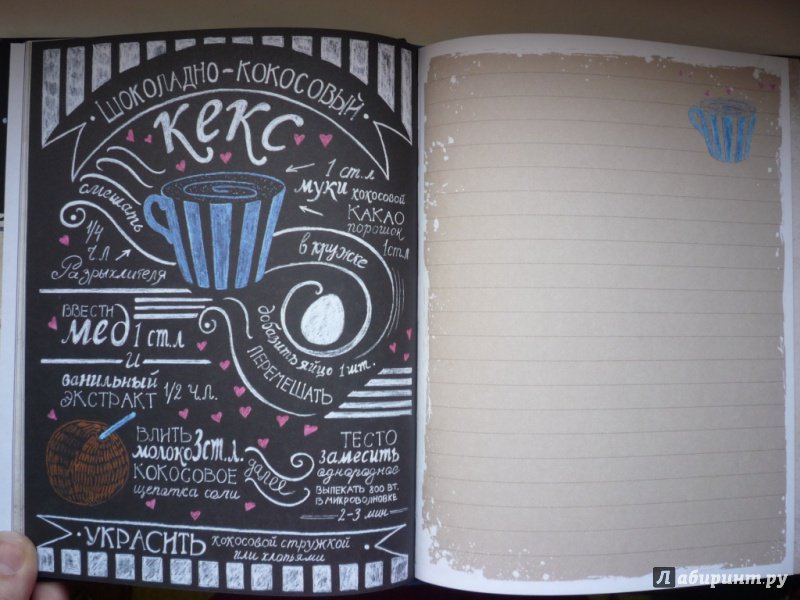 ШОКОЛАДНО-КОКОСОВЫЙ
кекс
1 ст.л
муки кокосовой
КАКАО
порошок
1 ст.л
смешать
в кружке
1/4
ч.л
Разрыхлителя
добавить яйцо 1 шт.
ПЕРЕМЕШАТЬ
ВВЕСТИ
мед 1 ст.л
и
ванильный
ЭКСТРАКТ 1/2 ч.л.
ВЛИТЬ
молоко 3 ст.л.
КОКОСОВОЕ
щепотка соли
далее
ТЕСТО
замесить
однородное
ВЫПЕКАТЬ 800 ВТ.
В МИКРОВОЛНОВКЕ
2-3 мин
УКРАСИТЬ кокосовой стружкой
или хлопьями
Лабиринт.ру